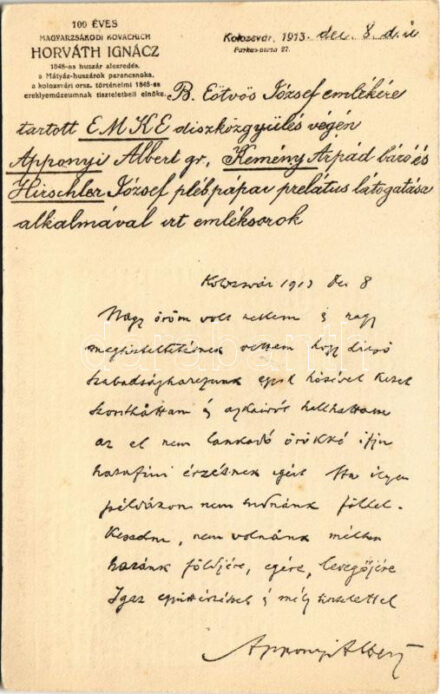 100 ÉVES
MAGYARZSÁKODI KOVACHICH
HORVÁTH IGNÁCZ
1848-as huszár alezredes,
a Mátyás-huszárok parancsnoka,
a kolozsvári orsz. történelmi 1848-as
ereklyemúzeumnak tiszteletbeli elnöke.
Kolozsvár, 1913. dec. 8. d.u.
Farkas-utca 27.
B. Eötvös József emlékére
tartott EMKE diszközgyülés végén
Apponyi Albert gr, Kemény Arpád báró és
Hirschler József pléb. pápai prelátus látogatása
alkalmával irt emléksorok
Kolozsvár 1913 Dec 8
Nagy öröm volt nekem és nagy
megtiszteltetésnek vettem hogy dicső
szabadságharczunk egyik hősével kezet
szoríthattam és ajkairól hallhattam
az el nem lankadó örökké ifju
hazafiui érzésnek igéit. Ha ilyen
példákon nem tudnánk föllel-
kesedni, nem volnánk méltók
hazánk földjére, egére, levegőjére
Igaz együttérzéssel és mély tisztelettel
Apponyi Albert